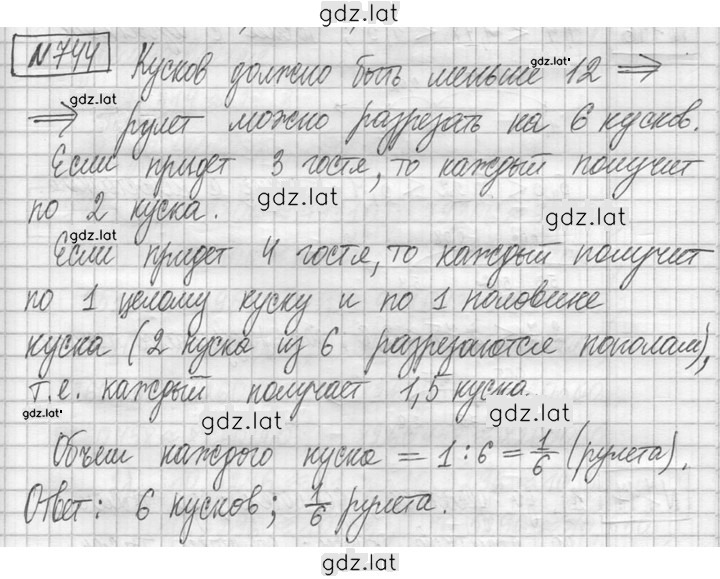 gdz.lat
№744 Кусков должно быть меньше 12 ⇒
gdz.lat
gdz.lat
⇒ рулет можно разрезать на 6 кусков.
Если придет 3 гостя, то каждый получит
gdz.lat
по 2 куска.
gdz.lat
gdz.lat
Если придет 4 гостя, то каждый получит
по 1 целому куску и по 1 половине
куска (2 куска из 6 разрезаются пополам),
т.е. каждый получает 1,5 куска.
gdz.lat
gdz.lat
gdz.lat
Объем каждого куска = 1 : 6 = 1/6 (рулета).
Ответ: 6 кусков; 1/6 рулета.
gdz.lat